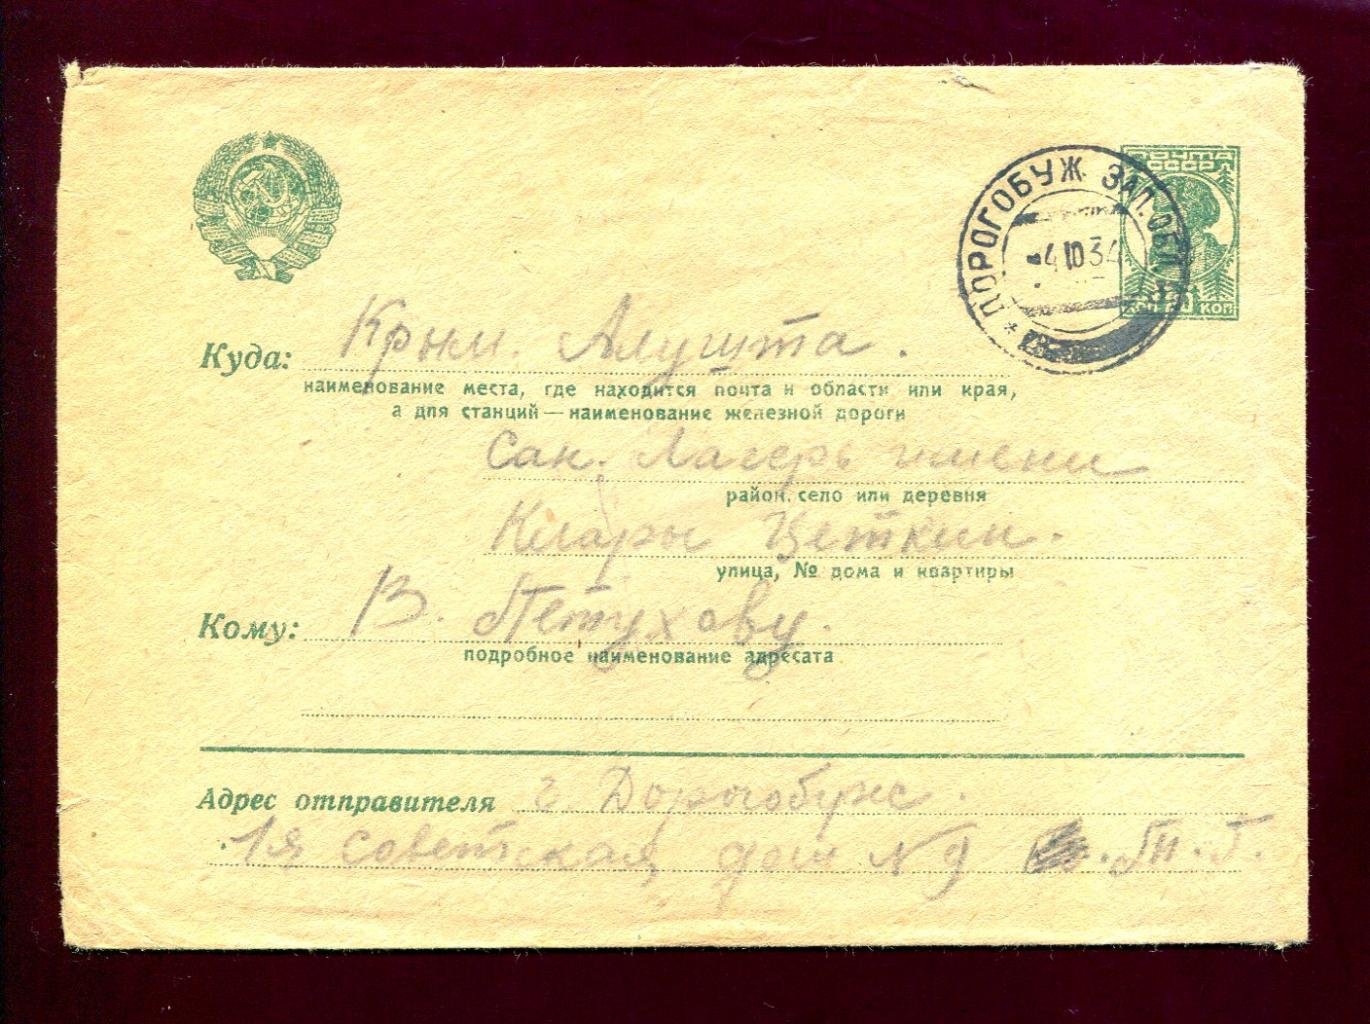 ПОЧТА
СССР
ДОРОГОБУЖ ЗАП. ОБЛ.
4 10 34
КОП 20 КОП
Куда: Крым. Алушта.
наименование места, где находится почта и области или края,
а для станций — наименование железной дороги
Сан. Лагерь имени
район, село или деревня
Клары Цеткин.
улица, № дома и квартиры
Кому: В. Петухову.
подробное наименование адресата
Адрес отправителя г. Дорогобуж.
1я советская, дом № 9